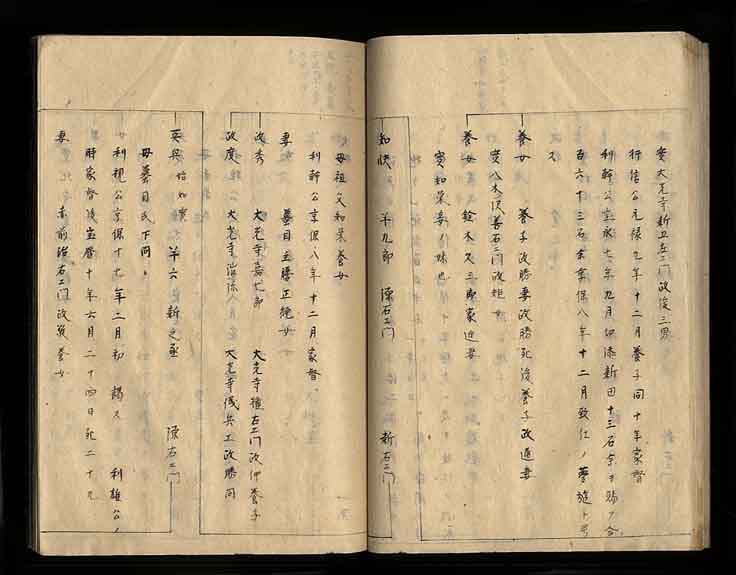 実大光寺新五左エ門政俊三男
行信公元禄九年十二月養子同十年家督
利幹公宝永七年九月切添新田十三石余ヲ賜フ合
百六十三石余享保八年十二月致仕ノ夢遊ト号
ス
養女 養子政勝妻政勝死後養子政通妻
実八木沢善右エ門政姫女
養女 鈴木又三郎家近妻
実知栄妻ノ妹也
知次 羊九郎 源右エ門 新右エ門
母祖父知栄養女
利幹公享保八年十二月家督
妻 蟇目正勝正純女
政秀 大光寺嘉七郎 大光寺権右エ門政仲養子
政度 大光寺 大光寺浅兵エ政勝同
英興 恰 知実 羊六 新之丞 源右エ門
母蟇目氏下同
利視公享保十七年二月初謁ス 利雄公ノ
時家督後宝暦十年六月二十四日死二十九
妻 赤前治右エ門政賀養女